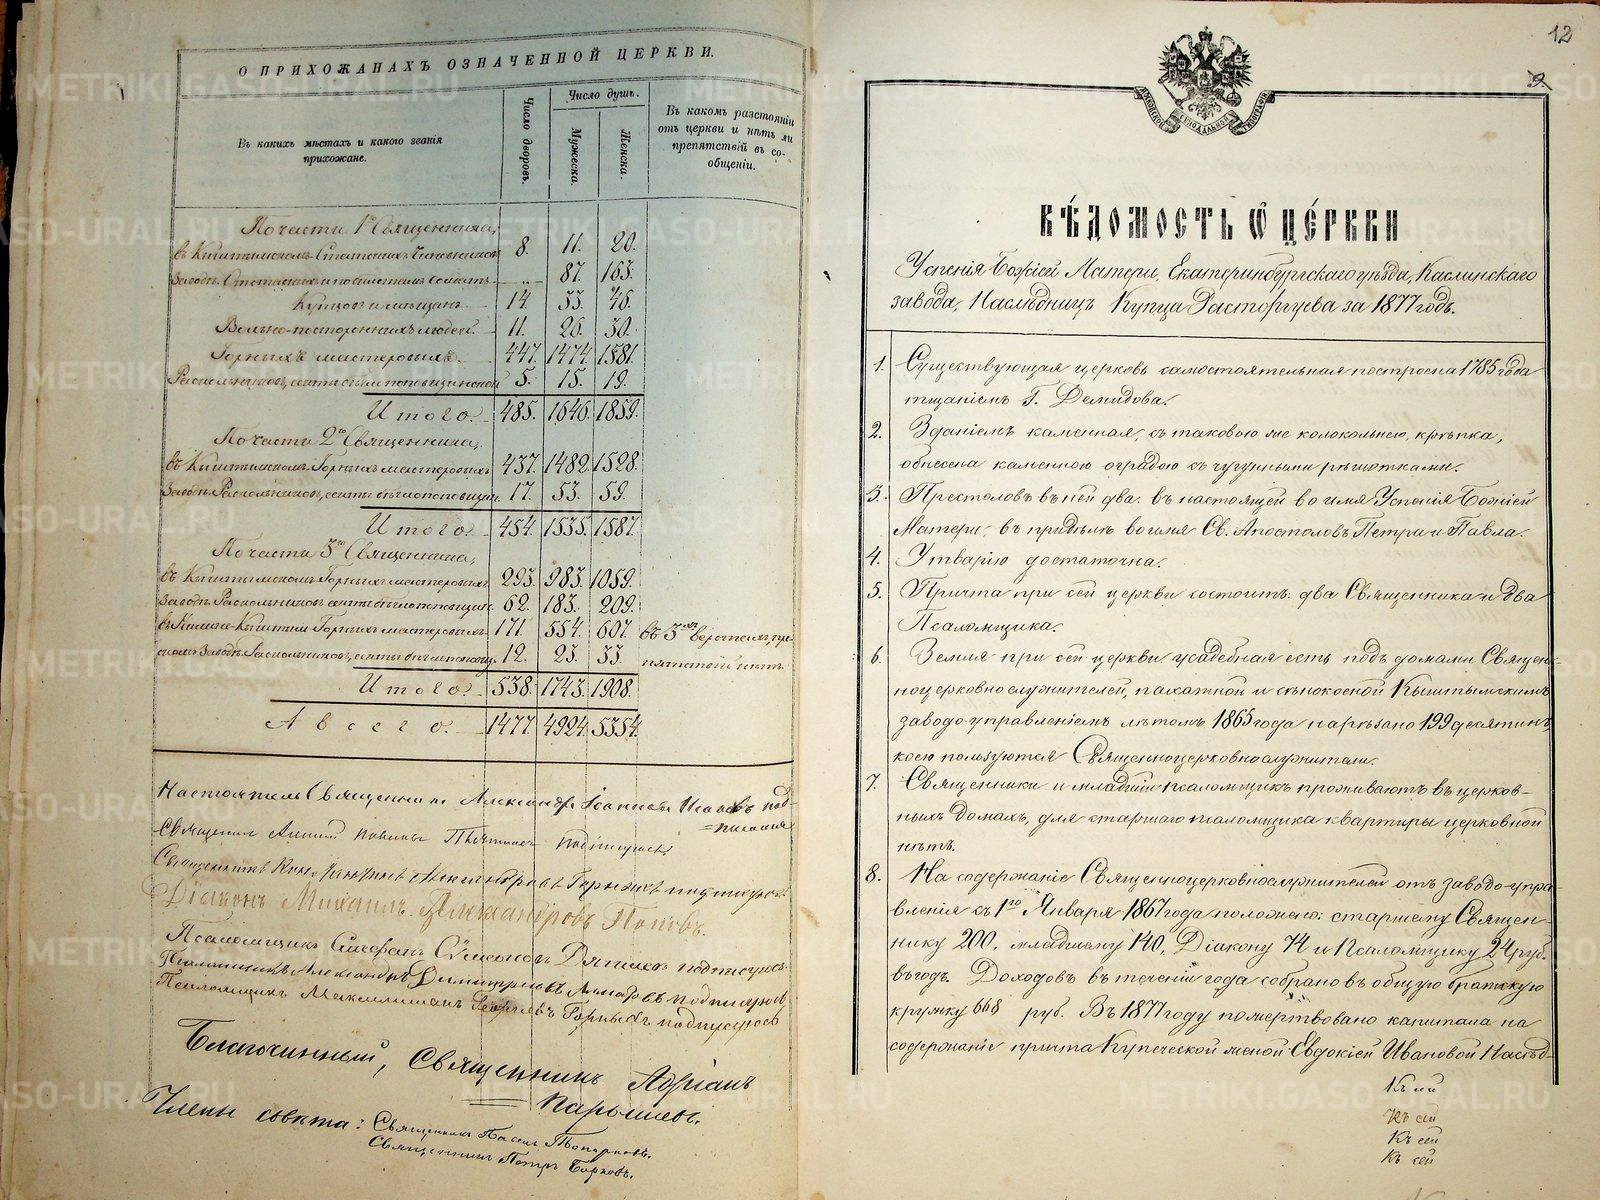 О ПРИХОЖАНАХЪ ОЗНАЧЕННОЙ ЦЕРКВИ.
Въ какихъ мѣстахъ и какого званія прихожане.
Число дворовъ.
Число душъ.
Мужеска.
Женска.
Въ какомъ разстояніи
отъ церкви и нѣтъ ли
препятствій въ со-
общеніи.
По части 1го Священника,
въ Кыштымскомъ Статскихъ Чиновниковъ 8. 11. 20.
Заводѣ Отставныхъ и по билетамъ солдатъ " 87. 163.
Купцовъ и мѣщанъ 14 33. 46.
Вольно-постороннихъ людей. 11. 26. 30.
Горныхъ мастеровыхъ. 447. 1474. 1581.
Раскольниковъ, секты бѣглопоповщинской 5. 15. 19.
Итого. 485. 1646. 1859.
По части 2го Священника,
въ Кыштымскомъ Горныхъ мастеровыхъ 437. 1482. 1528.
Заводѣ Раскольниковъ, секты бѣглопоповщин. 17. 53. 59.
Итого. 454. 1535. 1587.
По части 3го Священника,
въ Кыштымскомъ Горныхъ мастеровыхъ 293. 983. 1059.
Заводѣ Раскольниковъ секты бѣглопоповщин. 62. 183. 209.
въ Нижне-Кыштым- Горныхъ мастеровыхъ 171. 554. 607. въ 3хъ верстахъ, пре-
скомъ Заводѣ Раскольниковъ, секты бѣглопоповщ. 12. 23. 33. пятствій нѣтъ.
Итого. 538. 1743. 1908.
А всего. 1477. 4924. 5354.
Настоятель Священникъ Александръ Іоанновъ
Священникъ подписуюсь
Священникъ подписуюсь
Діаконъ Михаилъ Александровъ Поповъ.
Псаломщикъ Стефанъ Симеоновъ подписуюсь
Псаломщикъ Александръ Димитріевъ подписуюсь
Псаломщикъ Максимиліанъ Георгіевъ Горныхъ подписуюсь
Благочинный, Священникъ Адріанъ
Члены совѣта: Священникъ
Священникъ Петръ
12
9.
МОСКОВСКОЙ СѴНОДАЛЬНОЙ ТИПОГРАФІИ
ВѢ́ДОМОСТЬ Ѿ ЦЕ́РКВИ
Успенія Божіей Матери, Екатеринбургскаго уѣзда, Каслинскаго
завода, Наслѣдницъ Купца Расторгуева за 1877 годъ.
1. Существующая церковь самостоятельная построена 1785 года
тщаніемъ Г. Демидова.
2. Зданіемъ каменная, съ таковою же колокольнею, крѣпка,
обнесена каменною оградою съ чугунными рѣшотками.
3. Престоловъ въ ней два: въ настоящей во имя Успенія Божіей
Матери, въ придѣлѣ во имя Св. Апостоловъ Петра и Павла.
4. Утварію достаточна.
5. Причта при сей церкви состоитъ: два Священника и два
Псаломщика.
6. Земля при сей церкви усадебная есть подъ домами Священ-
ноцерковнослужителей, пахатной и сѣнокосной Кыштымскимъ
заводо-управленіемъ лѣтомъ 1865 года нарѣзано 199 десятинъ,
коею пользуются Священноцерковнослужители.
7. Священники и младшій псаломщикъ проживаютъ въ церков-
ныхъ домахъ, для старшаго псаломщика квартиры церковной
нѣтъ.
8. На содержаніе Священноцерковнослужителей отъ заводо-упра-
вленія съ 1го Января 1867 года положено: старшему Священ-
нику 200, младшему 140, Діакону 74 и Псаломщику 24 руб.
въ годъ. Доходовъ въ теченіи года собрано въ общую братскую
кружку 668 руб. Въ 1877 году пожертвовано капитала на
содержаніе причта Купеческой женой Евдокіей Ивановой Наслѣд-
Къ сей
Къ сей
Къ сей
Къ сей
METRIKI.GASO-URAL.RU